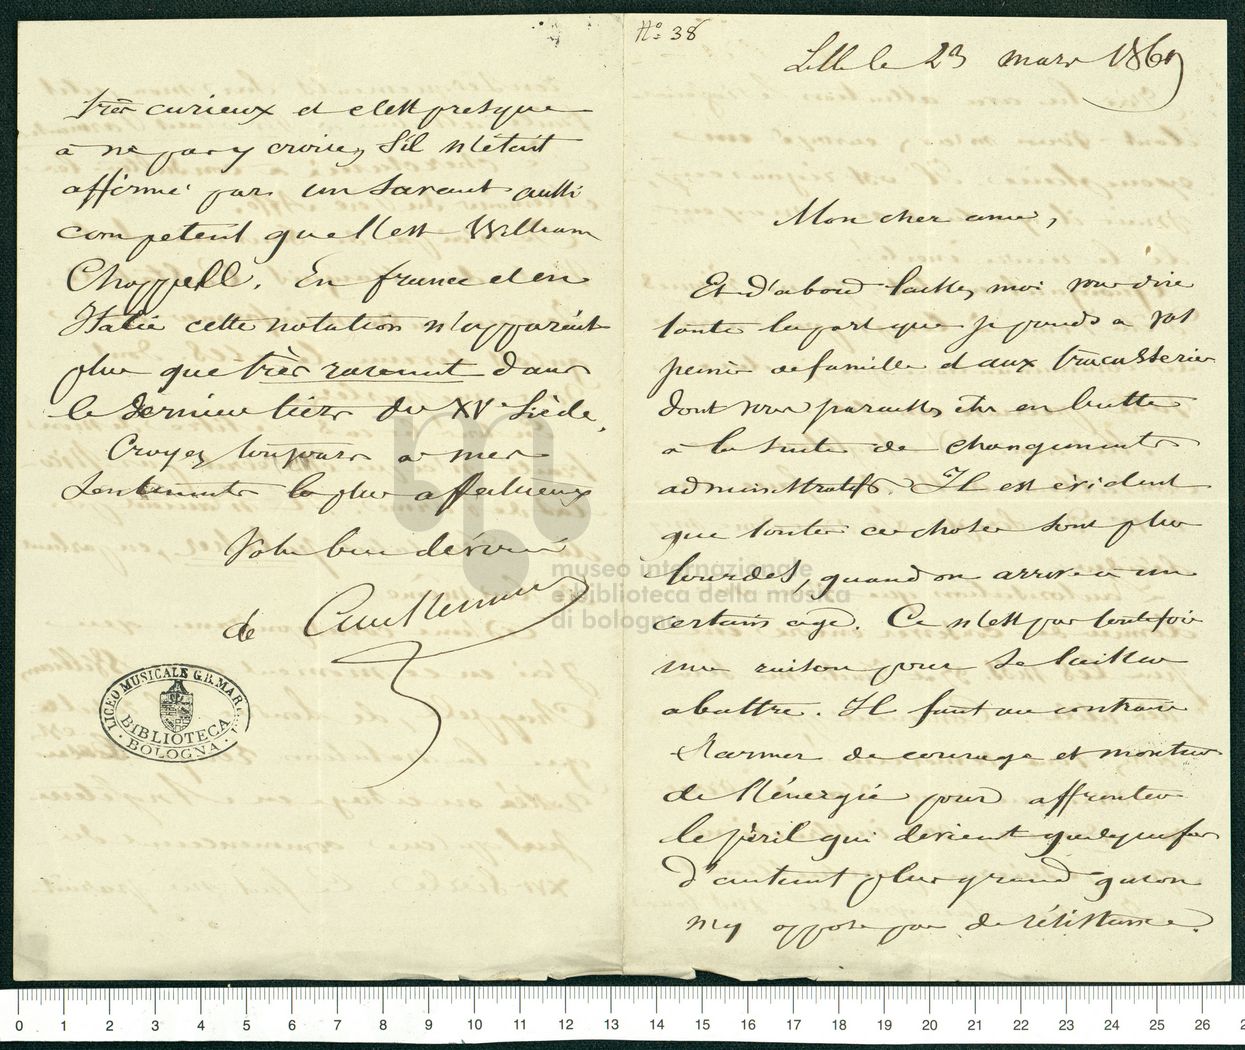 No. 38
Lille le 23 mars 1869
Mon cher ami,
Et d'abord laissez moi vous dire
toute la part que je prends a vos
peines de famille et aux tracasseries
dont vous paraissez être en butte
à la suite de changements
administratifs. Il est évident
que toutes ces choses sont plus
lourdes, quand on arrive a un
certain age. Ce n'est pas toutefois
une raison pour se laisser
abattre. Il faut au contraire
s'armer de courage et montrer
de l'énergie pour affronter
le péril qui devient quelquefois
d'autant plus grand qu'on
n'y oppose pas de résistance.
très curieux et c'est presque
a ne pas y croire, s'il n'était
affirmé par un savant aussi
competent que l'est William
Chappell. En france et en
Italie cette notation n'apparait
plus que très rarement dans
le dernier tiers du XVe Siècle.
Croyez toujours a mes
sentiments les plus affectueux
Votre bien dévoué
de Coussemaker
LICEO MUSICALE G.B. MAR
BIBLIOTECA
BOLOGNA
museo internazionale
e biblioteca della musica
di bologna
0 1 2 3 4 5 6 7 8 9 10 11 12 13 14 15 16 17 18 19 20 21 22 23 24 25 26